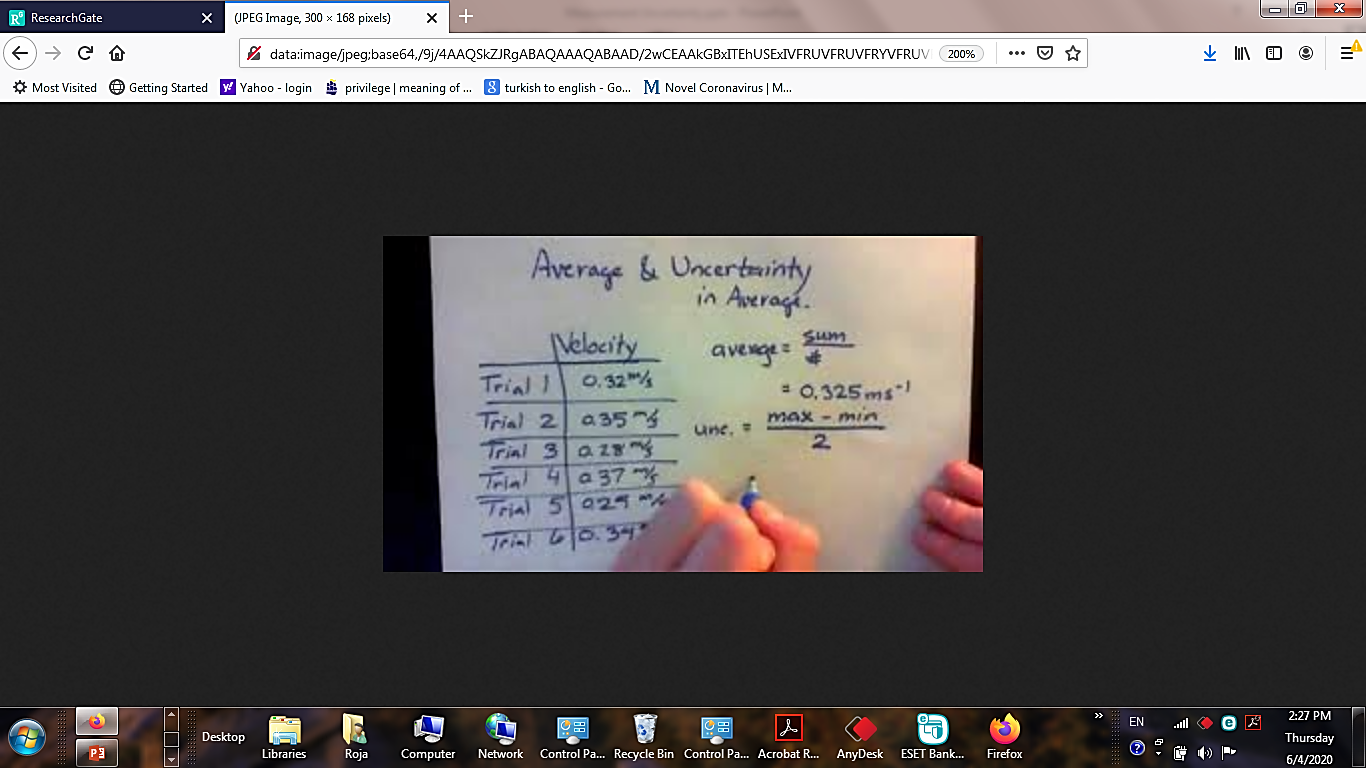 ResearchGate
(JPEG Image, 300 × 168 pixels)
data:image/jpeg;base64,/9j/4AAQSkZJRgABAQAAAQABAAD/2wCEAAkGBxITEhUSExIVFRUVFRUVFRYVFRUV
200%
Most Visited
Getting Started
Yahoo - login
privilege | meaning of ...
turkish to english - Go...
Novel Coronavirus | M...
Average & Uncertainty
in Average.
Velocity
Trial 1 0.32 m/s
Trial 2 0.35 m/s
Trial 3 0.28 m/s
Trial 4 0.37 m/s
Trial 5 0.29 m/s
Trial 6 0.34
average = sum
#
= 0.325 ms⁻¹
unc. = max - min
2
Desktop
Libraries
Roja
Computer
Network
Control Pa...
Recycle Bin
Control Pa...
Acrobat R...
AnyDesk
ESET Bank...
Firefox
EN
2:27 PM
Thursday
6/4/2020